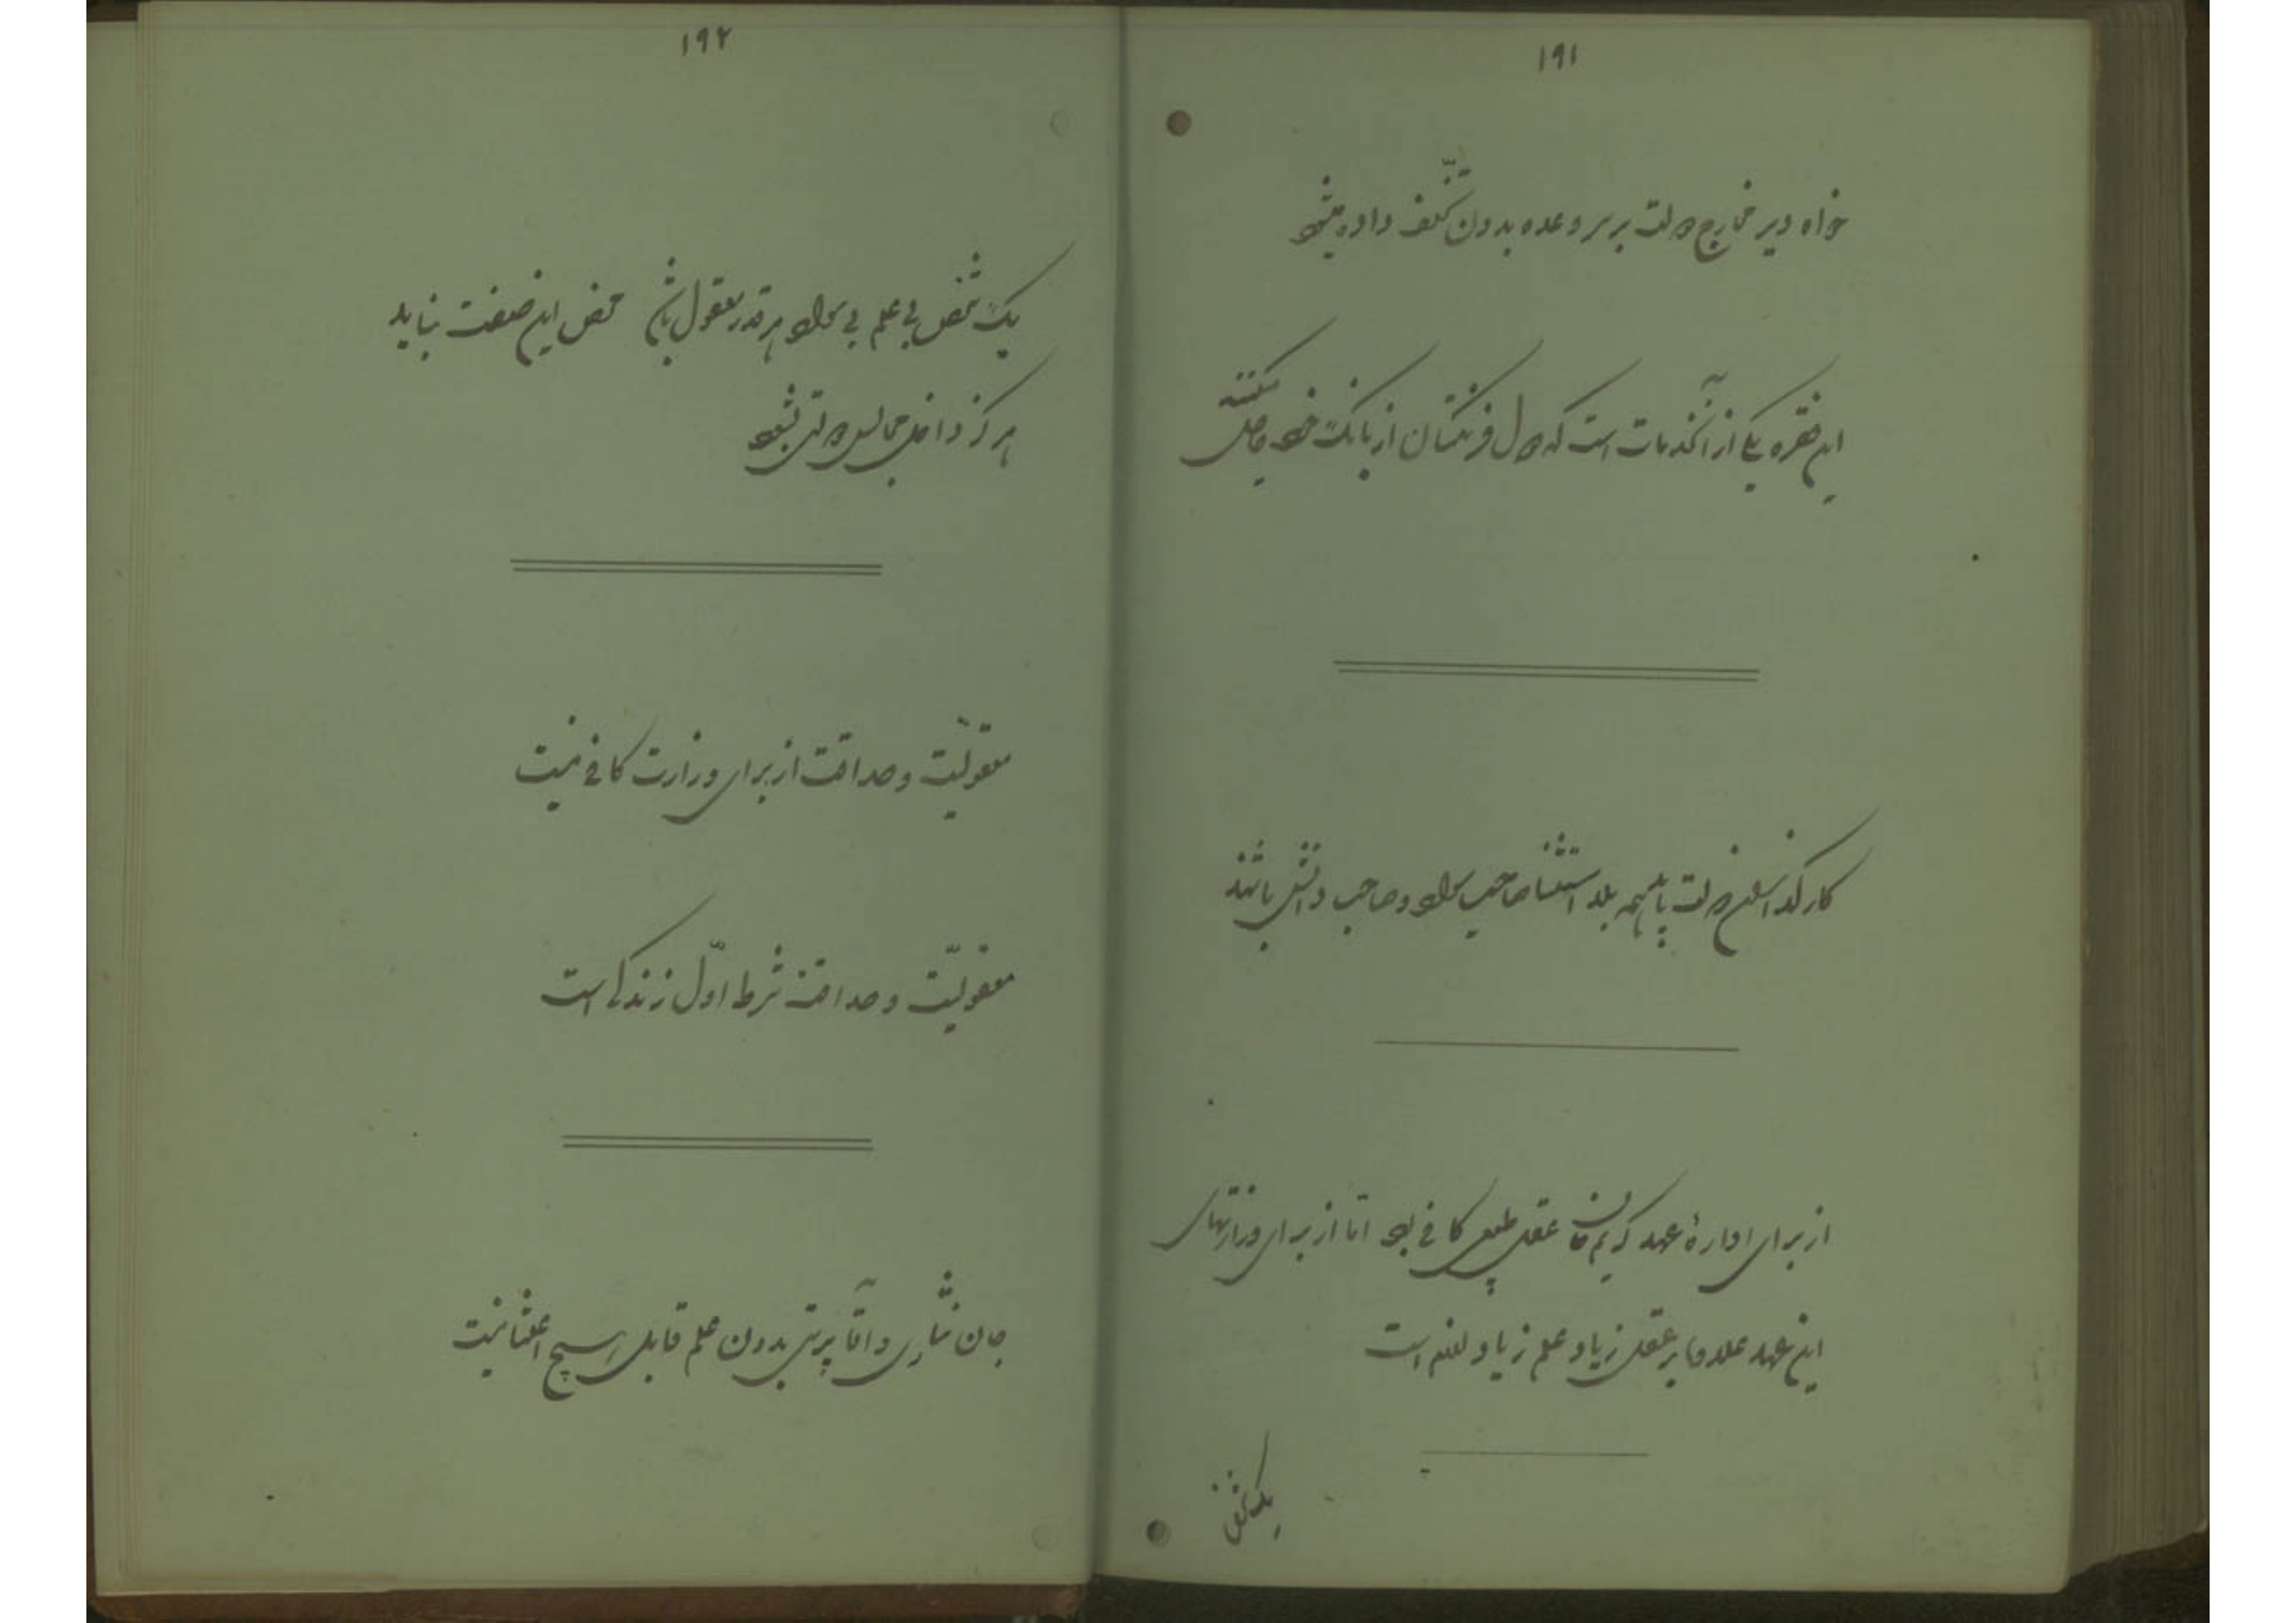 ۱۹۱
خواه دیر مخارج دولت بر سر وعده بدون تکلف داده میشود
این فقره یکی از آنخدمات است که دول فرنگستان از بانک خود حاصل میکنند
کارگذاران دولت باید همه بلا استثنا صاحب سواد و صاحب دانش باشند
از برای ادارهٔ عهد کریم خان عقل طبیعی کافی بود اما از برای وزارتهای
این عهد علاوه بر عقل زیاد علم زیاد لازم است
یک شخص
۱۹۲
یک شخص بی علم بی سواد هر قدر معقول باشد محض این صفت نباید
هرگز داخل مجالس دولتی بشود
معقولیّت و صداقت از برای وزارت کافی نیست
معقولیّت و صداقت شرط اوّل زندگی است
جان نثاری و آقا پرستی بدون علم قابل هیچ اعتنا نیست